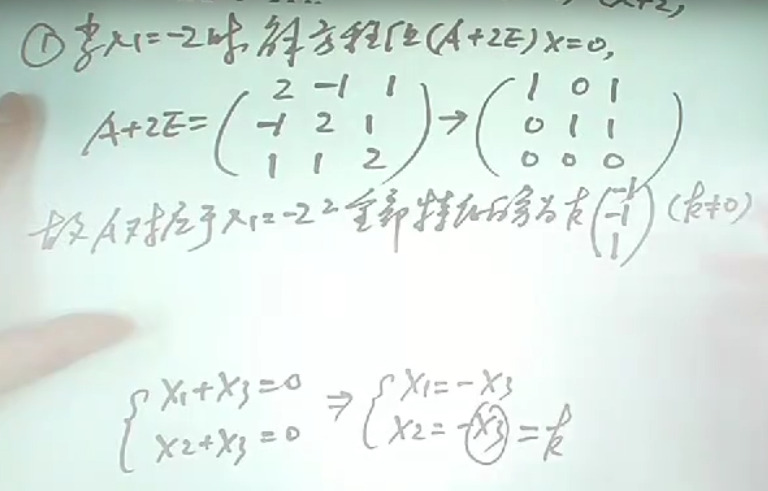 ① 当λ1=-2时,解方程组(A+2E)x=0,
A+2E=(2 -1 1
-1 2 1
1 1 2)→(1 0 1
0 1 1
0 0 0)
故A对应于λ1=-2之全部特征向量为k(-1
-1
1)(k≠0)
{x1+x3=0 ⇒ {x1=-x3
x2+x3=0 x2=-x3=k